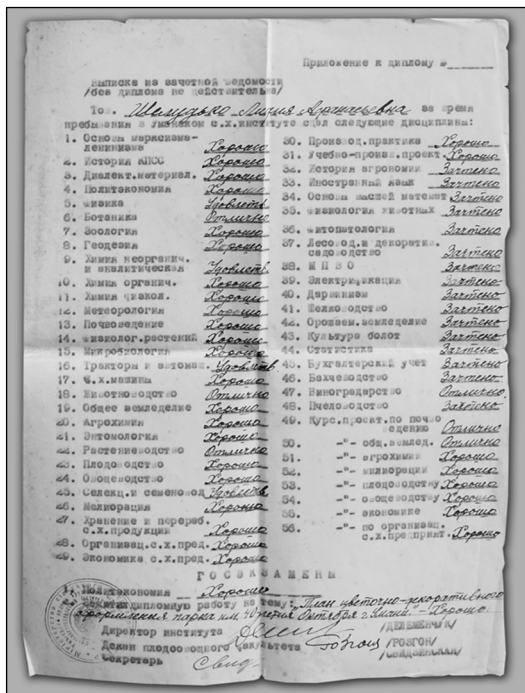 Приложение к диплому №
Выписка из зачетной ведомости
/без диплома не действительна/
Тов. Лидия за время
пребывания в Уманском с.х.институте сдал следующие дисциплины:
1. Основы марксизма-
ленинизма Хорошо
2. История КПСС Хорошо
3. Диалект.материал. Хорошо
4. Политэкономия Хорошо
5. Физика Удовлетв.
6. Ботаника Отлично
7. Зоология Хорошо
8. Геодезия Хорошо
9. Химия неорганич.
и аналитическая Удовлетв.
10. Химия органич. Хорошо
11. Химия физкол. Хорошо
12. Метеорология Хорошо
13. Почвоведение Хорошо
14. Физиолог.растений Хорошо
15. Микробиология Хорошо
16. Тракторы и автомаш. Удовлетв.
17. С.х.машины Хорошо
18. Животноводство Отлично
19. Общее земледелие Хорошо
20. Агрохимия Хорошо
21. Энтомология Хорошо
22. Растениеводство Отлично
23. Плодоводство Хорошо
24. Овощеводство Хорошо
25. Селекц.и семеновод. Удовлетв
26. Мелиорация Хорошо
27. Хранение и перераб.
с.х.продукции Хорошо
28. Организац.с.х.пред. Хорошо
29. Экономика с.х.пред. Хорошо
30. Производ.практика Хорошо
31. Учебно-произв.проект. Хорошо
32. История агрономии Зачтено
33. Иностранный язык Зачтено
34. Основы высшей математ Зачтено
35. Физиология животных Зачтено
36. Фитопатология Зачтено
37. Лесовод.и декоратив.
садоводство Зачтено
38. М П В О Зачтено
39. Электрификация Зачтено
40. Дарвинизм Зачтено
41. Шелководство Зачтено
42. Орошаем.земледелие Зачтено
43. Культура болот Зачтено
44. Статистика Зачтено
45. Бухгалтерский учет Зачтено
46. Бахчеводство Зачтено
47. Виноградарство Отлично
48. Пчеловодство Зачтено
49. Курс.проект.по почво
ведению Отлично
50. -"- общ.землед. Отлично
51. -"- агрохимии Хорошо
52. -"- мелиорации Хорошо
53. -"- плодоводству Хорошо
54. -"- овощеводству Хорошо
55. -"- экономике Хорошо
56. -"- по организац.
с.х.предприят. Хорошо
ГОСЭКЗАМЕНЫ
Политэкономия Хорошо
дипломную работу на тему: "План цветочно-декоративного
оформления парка им. Октября г. Умани" - Хорошо
Директор института /ДЕЛЕМЕНЧУК/
Декан плодоовощного факультета /РОЗГОН/
Секретарь